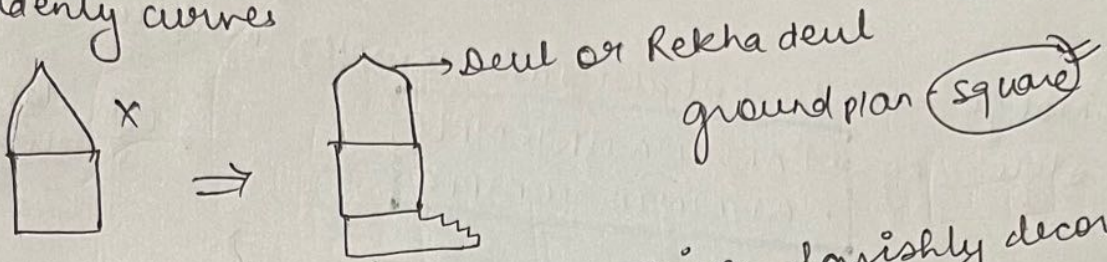 denly curves
Deul or Rekha deul
ground plan - square
X
lavishly decor